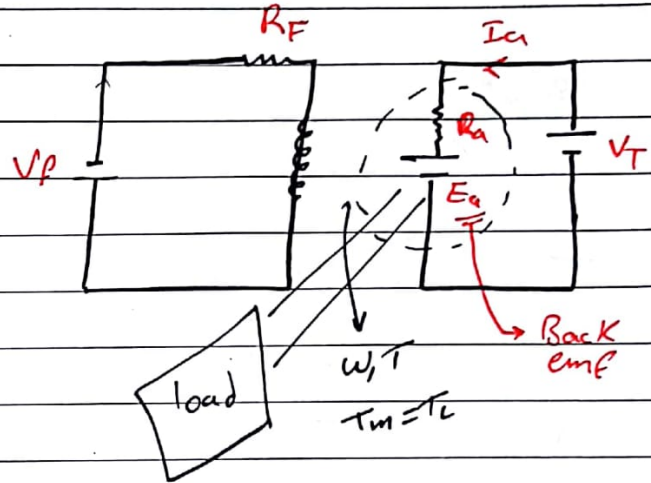 R_F
Ia
Vf
Ra
V_T
Ea
Back
emf
load
w, T
Tm = TL